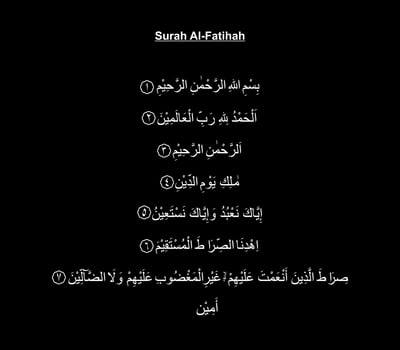 Surah Al-Fatihah
بِسْمِ اللهِ الرَّحْمٰنِ الرَّحِيْمِ ۝١
اَلْحَمْدُ لِلهِ رَبِّ الْعَالَمِيْنَ ۝٢
اَلرَّحْمٰنِ الرَّحِيْمِ ۝٣
مٰلِكِ يَوْمِ الدِّيْنِ ۝٤
إِيَّاكَ نَعْبُدُ وَإِيَّاكَ نَسْتَعِيْنُ ۝٥
اِهْدِنَا الصِّرَا طَ الْمُسْتَقِيْمَ ۝٦
صِرَا طَ الَّذِينَ أَنْعَمْتَ عَلَيْهِمْ ۙ غَيْرِالْمَغْضُوبِ عَلَيْهِمْ وَ لَا الضَّآلِّيْنَ ۝٧
أَمِيْن